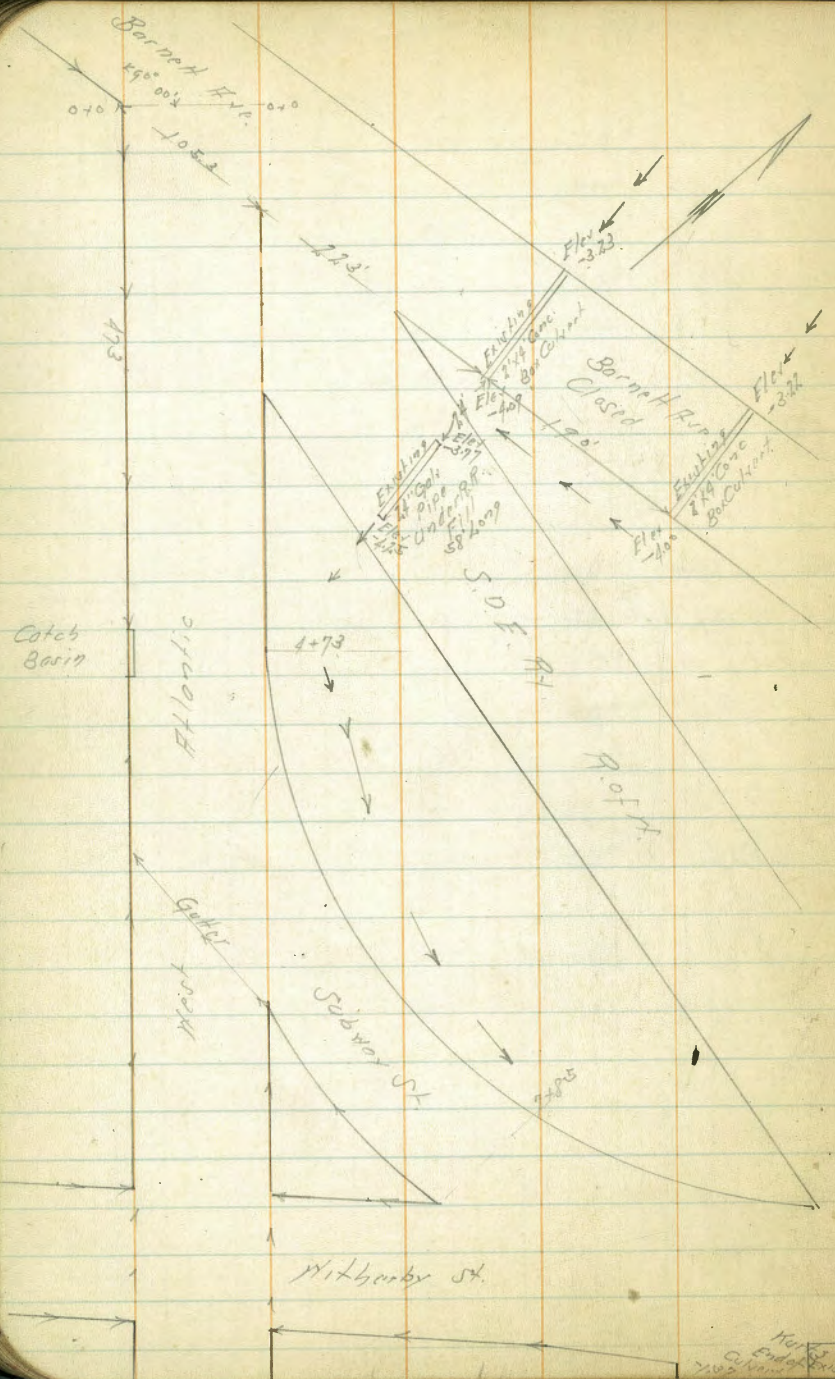 Barnett Ave.
90°
00'
0+0
0+0
105.3
223'
473
Elev
-3.23
Existing
2'x4' Conc.
Box Culvert
Elev
-4.09
Barnett Ave.
Closed
190'
Elev
-3.22
Existing
2'x4' Conc
Box Culvert
Elev
-4.00
Elev
-3.77
Existing
24" Galv
Pipe
Under R.R.
Fill
58' Long
Elev
-4.25
S.D.E. Ry.
R. of W.
Catch
Basin
Atlantic
4+73
Gutter
West
Subway St.
7+85
Witherby St.
End of
Culvert